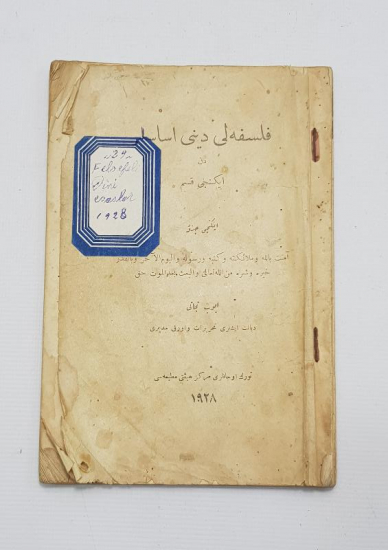 فلسفه لی دینی اساسلر
دن
ایکنجی قسم
آمنت بالله وملائکته وکتبه ورسوله والیوم الآخر وبالقدر
خیره وشره من الله تعالی والبعث بعدالموت حق
دیانت ایشلری تحریرات واوراق مدیری
تورك اوجاقلری مرکز هیئتی مطبعه‌سی
۱۹۲۸
-24-
Felsefeli
Dini
esaslar
1928